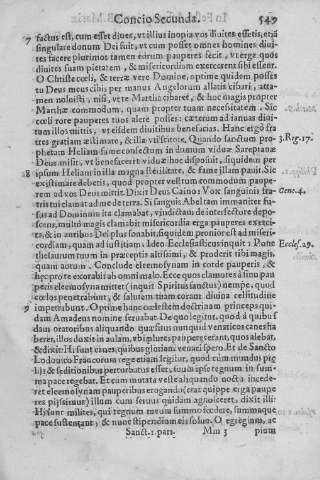 Concio Secunda. 549
7 factus est, cum esset dives, vt illius inopia vos diuites essetis, etsi
singulare donum Dei suit, vt cum posset omnes homines diui
tes facere plurimos tamen eorum pauperes fecit, vt erga quos
diuites suam pietatem, & misericordiam exercarent sibi essent.
O Christe cœli, & terræ vere Domine, optime quidem posses
tu Deus meus cibis per manus Angelorum allatis cibari, atta-
men noluisti, nisi, vt te Martha cibaret, & hoc magis propter
Marthæ commodum, quam propter tuam necessitatem. Sic
coeli rore pauperes tuos alere posses: cæterum ad ianuas diui-
tum illos mittis, vt eisdem diuitibus benefacias. Hanc ergo fra
tres gratiam æstimate, & illa vtiscimini. Quando sanctum pro- 3.Reg.17.
phetam Heliam fame confectum in domum viduæ Sareptanæ
Deus misit, vt benefacerit viduæ hoc disposuit, siquidem per
8 ipsum Heliam in illa magna sterilitate, & fame illam pauit. Sic
existimare debetis, quod propter vestrum commodum paupe-
rem ad vos Deus mittit. Dixit Deus Caino: Vox sanguinis fra- Gene.4.
tris tui clamat ad me de terra. Si sanguis Abel tam immaniter fu-
sus ad Dominum ita clamabat, vindictam de interfectore depo-
scens, multo magis clamabit misericordia erga pauperes exerci-
ta, & in auribus Dei plus sonabit, siquidem pronior est ad miseri-
cordiam, quam ad iustitiam. Ideo Ecclesiasticus inquit: Pone Eccles.29.
thesaurum tuum in præceptis altissimi, & proderit tibi magis,
quam aurum. Conclude eleemosynam in corde pauperis, &
hæc pro te exorabit ab omni malo. Ecce quos clamores à sinu pau
peris eleemosyna mittet (inquit Spiritus sanctus) nempe, quod
cœlos penetrabunt, & salutem tuam coram diuina celsitudine
9 impetrabunt. Optime hanc cœlestem doctrinam princeps qui-
dam Amadeus nomine seruabat. De quo legitur, quod à quibus
dam oratoribus aliquando quæsitus nunquid venaticos canes ha
beret, illos duxit in aulam, vbi plures pauperes erant, quos alebat,
& dixit: Hi sunt canes, quibus gloriam venari spero. Et de Sancto
Lodouico Francorum rege etiam legitur, quod cum mundus plu
ribus & seditionibus perturbatus esset, suum ipse regnum in sum-
ma pace regebat. Et cum mutata veste aliquando nocta incede-
ret eleemosynam pauperibus erogando (erat quippe erga paupe
res pijssimus) illum cum seruus quidam agnouisset, dixit illi:
Hi sunt milites, qui regnum meum summo fœdere, summaque
pace sustentant, & nunc stipendium eis soluo. O egregium, ac
Sanct. 2. pars. Mm 3 pium